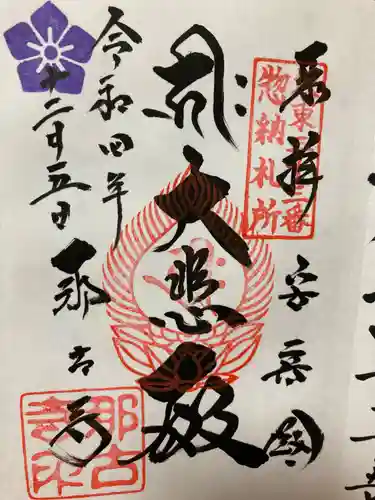 奉拝
坂東三十三番
惣納札所
安房國
大悲殿
令和四年
十二月五日
那古寺